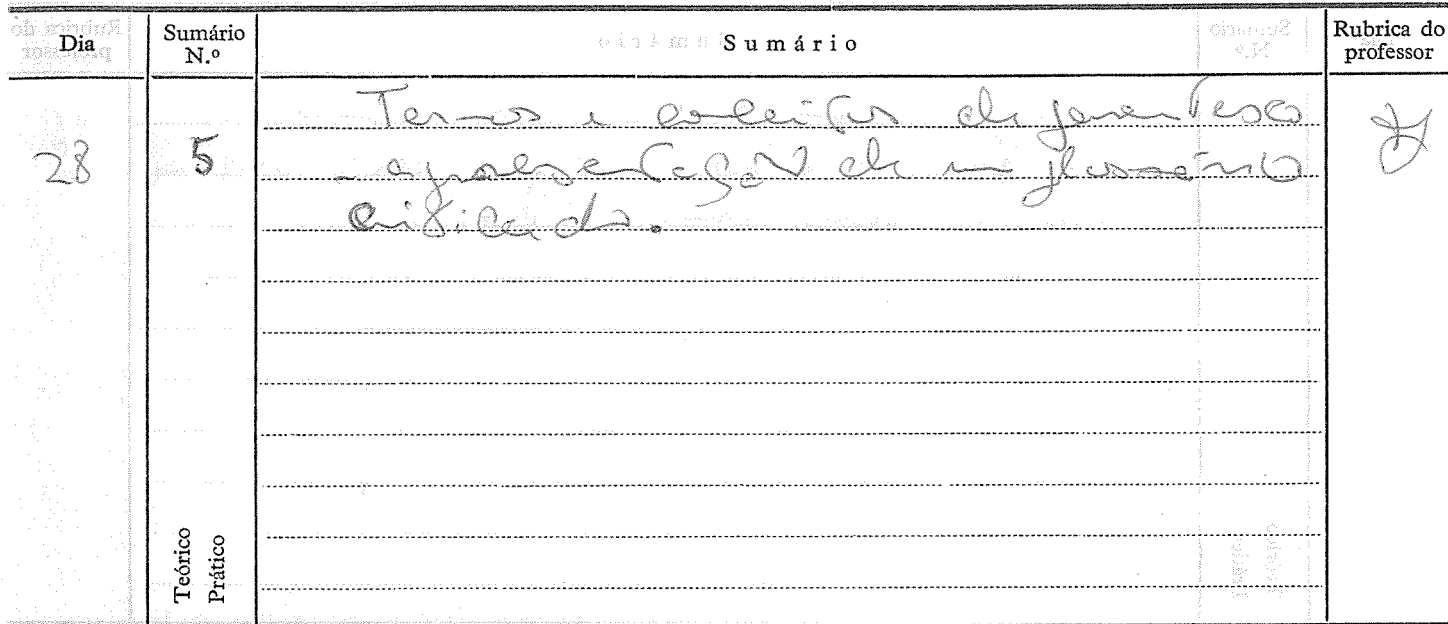 Dia Sumário N.º Sumário Rubrica do professor
28 5 Termos e conceitos de parentesco
- apresentação de um glossário
Teórico
Prático